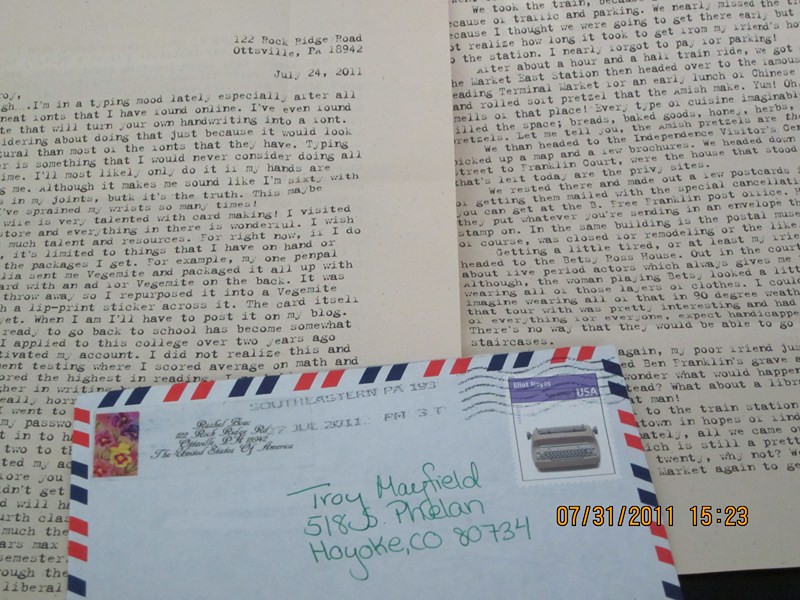 122 Rock Ridge Road
Ottsville, PA 18942
July 24, 2011
roy,
gh...I'm in a typing mood lately especially after all
neat fonts that I have found online. I've even found
te that will turn your own handwriting into a font.
sidering about doing that just because it would look
tural than most of the fonts that they have. Typing
er is something that I would never consider doing all
ime. I'll most likely only do it if my hands are
ng me. Although it makes me sound like I'm sixty with
s in my joints, butk it's the truth. This maybe
I've sprained my wrists so many times!
wife is very talented with card making! I visited
store and everything in there is wonderful. I wish
much talent and resources. For right now, if I do
, it's limited to things that I have on hand or
the packages I get. For example, my one penpal
lia sent me Vegemite and packaged it all up with
ard with an ad for Vegemite on the back. It was
throw away so I repurposed it into a Vegemite
h a lip-print sticker across it. The card itself
yet. When I am I'll have to post it on my blog.
ready to go back to school has become somewhat
I applied to this college over two years ago
tivated my account. I did not realize this and
ent testing where I scored average on math and
ored the highest in reading. I
gher in writing
really horr
I went to
my passwo
t in to h
two to th
ted my ac
ore you
dn't get
d will ha
urth clas
much the
ars max
semester.
ough the
liberal
We took the train, because
ecause of traffic and parking. We nearly missed the tr
ecause I thought we were going to get there early but
ot realize how long it took to get from my friend's ho
o the station. I nearly forgot to pay for parking!
After about a hour and a half train ride, we got
o the Market East Station then headed over to the famous
eading Terminal Market for an early lunch of Chinese
and rolled soft pretzel that the Amish make. Yum! Oh,
mells of that place! Every type of cuisine imaginabl
illed the space; breads, baked goods, honey, herbs,
retzels. Let me tell you, the Amish pretzels are th
We than headed to the Independence Visitor's Cen
picked up a map and a few brochures. We headed down
Street to Franklin Court, were the house that stood
that's left today are the privy sites.
We rested there and made out a few postcards i
of getting them mailed with the special cancellati
you can get at the B. Free Franklin post office. T
they put whatever you're sending in an envelope th
stamp on. In the same building is the postal muse
of course, was closed for remodeling or the like.
Getting a little tired, or at least my frie
headed to the Betsy Ross House. Out in the court
about five period actors which always gives me
Although, the woman playing Betsy looked a littl
wearing all of those layers of clothes. I could
imagine wearing all of that in 90 degree weath
that tour with was pretty interesting and had
of everything or everyone, expect handicappe
There's no way that they would be able to go
staircases.
again, my poor friend just
ed Ben Franklin's grave a
wonder what would happen
tead? What about a libra
t man!
to the train station
town in hopes of find
ately, all we came ov
hich is still a pretty
twenty, why not? We
Market again to ge
SOUTHEASTERN PA 193
27 JUL 2011 PM 3 T
Rachel Baum
122 Rock Ridge Rd.
Ottsville, PA 18942
The United States Of America
Eliot Noyes
USA
Troy Mayfield
518 S. Phelan
Hoyoke, CO 80734
07/31/2011 15:23